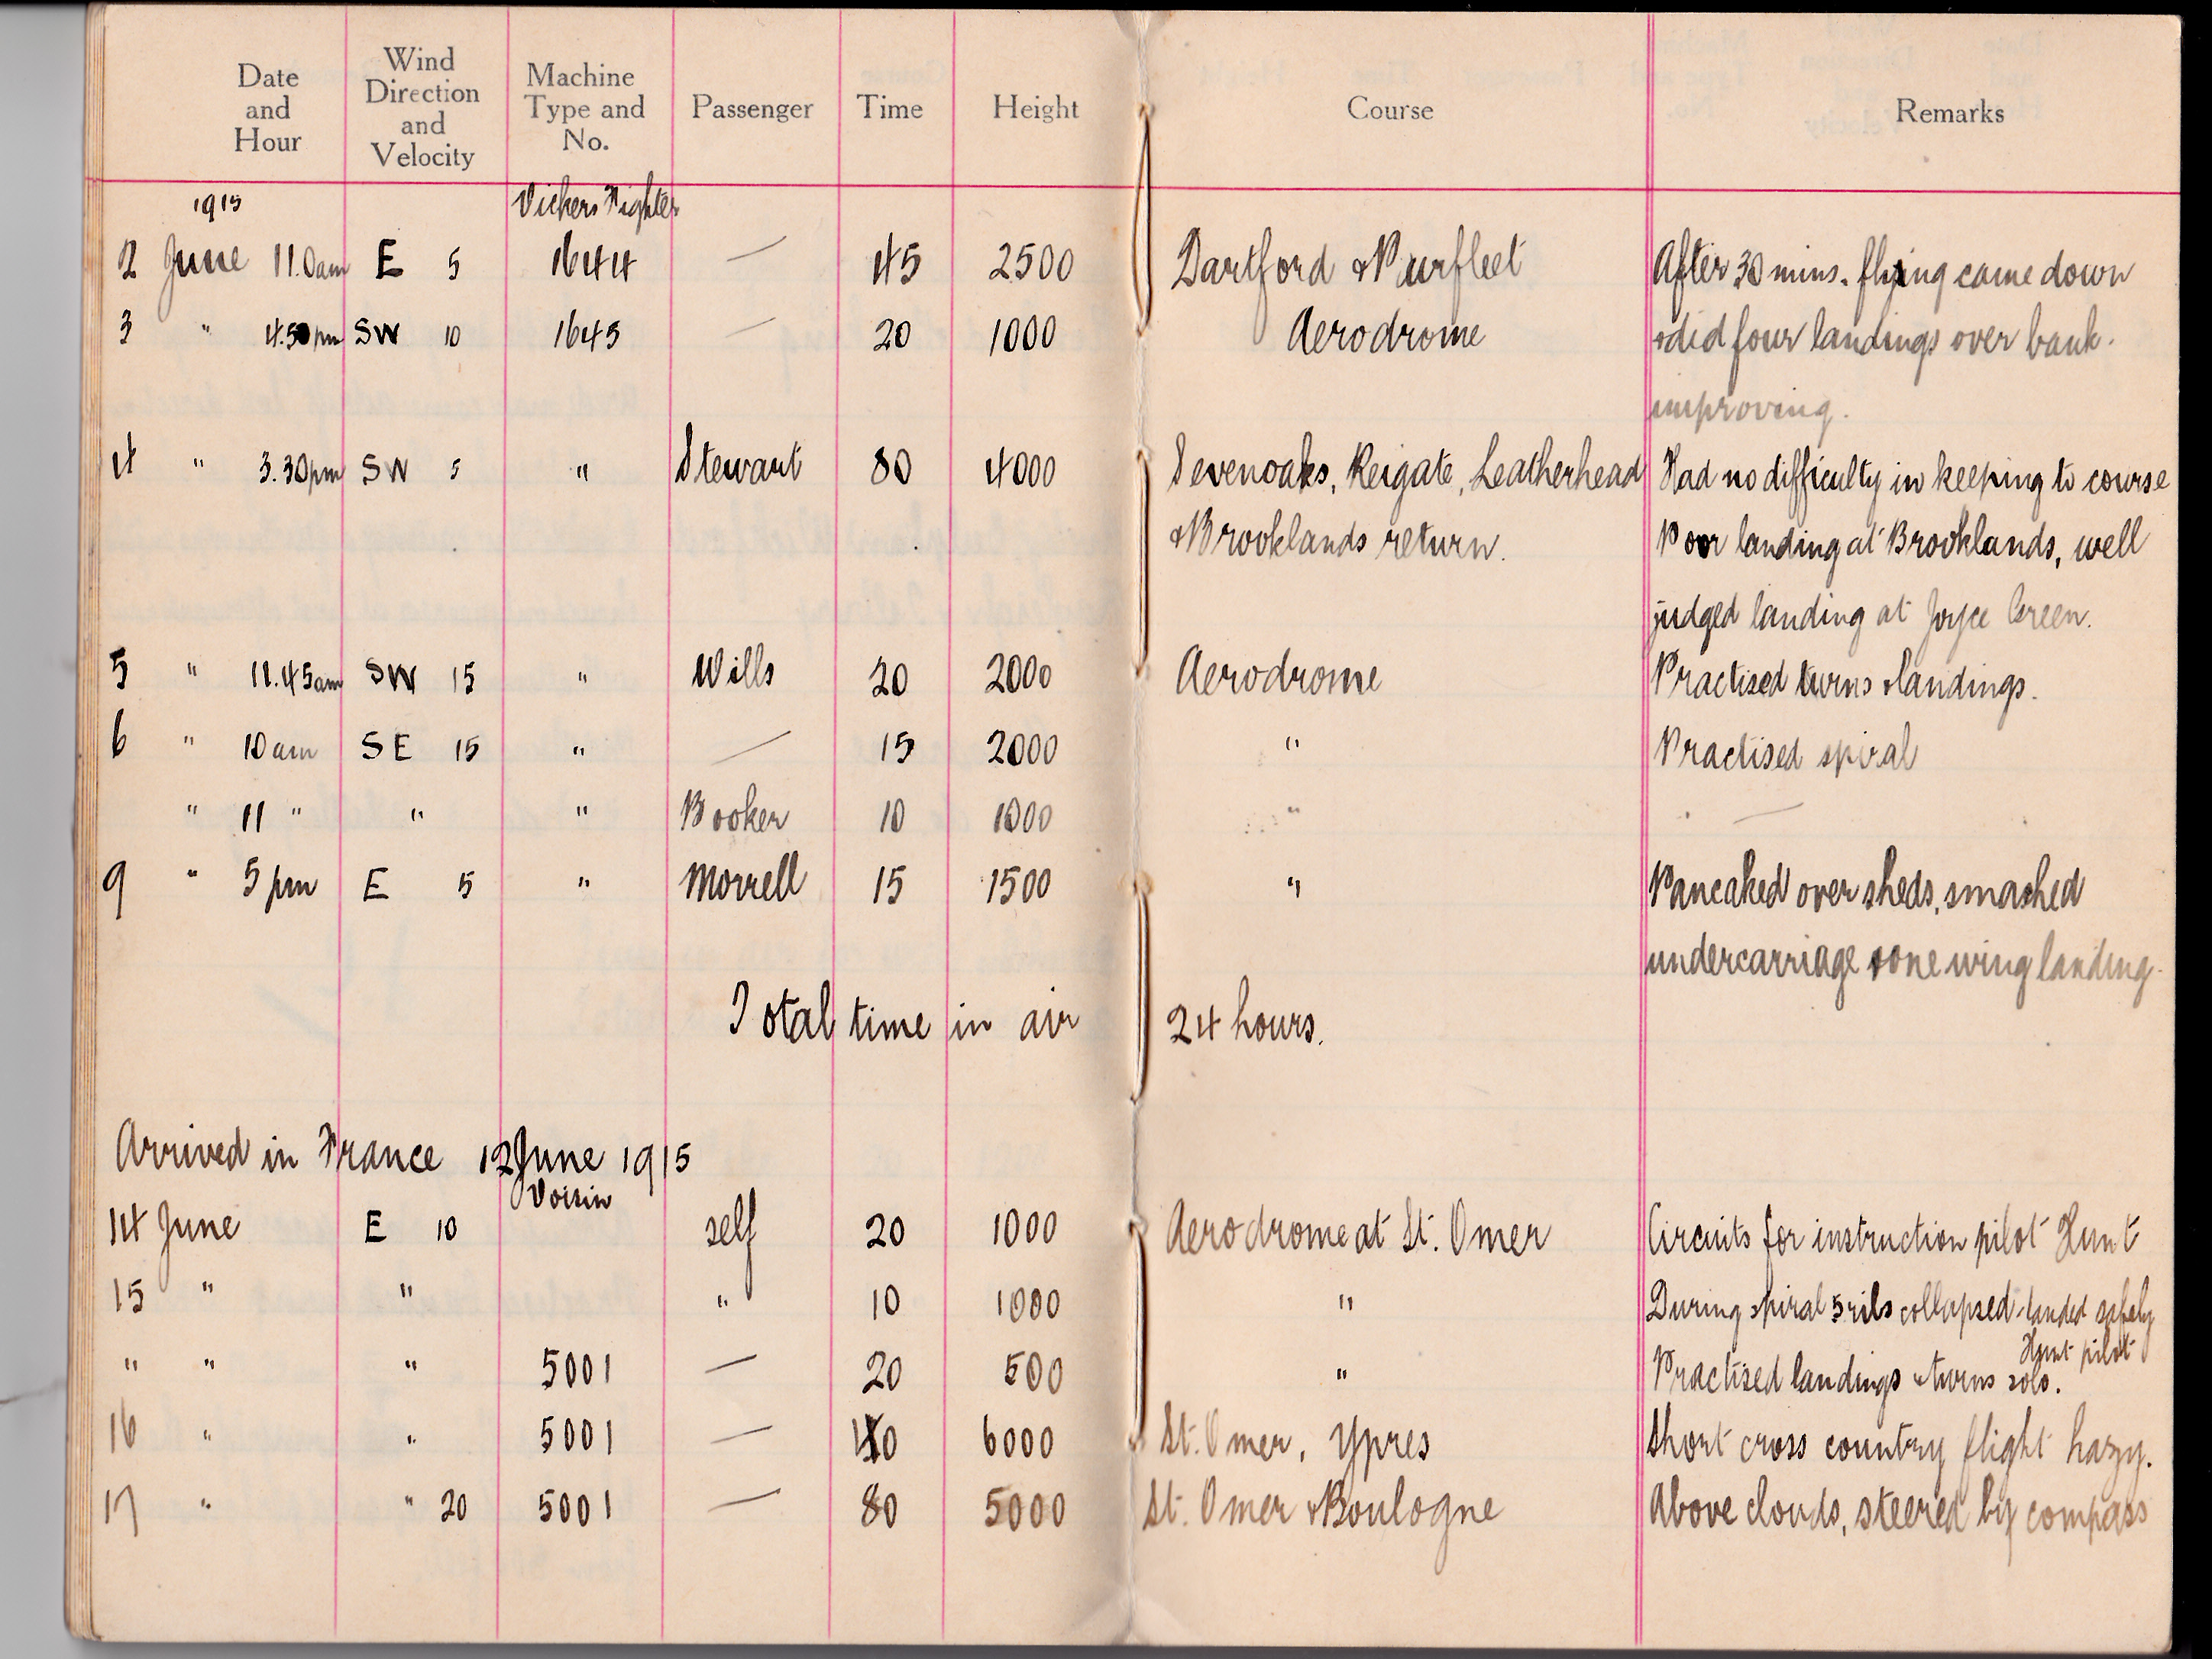 Date and Hour Wind Direction and Velocity Machine Type and No. Passenger Time Height Course Remarks
1915 Vickers Fighter
2 June 11.0am E 5 1644 — 45 2500 Dartford & Purfleet After 30 mins. flying came down
3 " 4.50pm SW 10 1645 — 20 1000 Aerodrome & did four landings over bank.
improving.
4 " 3.30pm SW 5 " Stewart 80 4000 Sevenoaks, Reigate, Leatherhead Had no difficulty in keeping to course
& Brooklands return. Poor landing at Brooklands, well
judged landing at Joyce Green.
5 " 11.45am SW 15 " Wills 20 2000 Aerodrome Practised turns & landings.
6 " 10am SE 15 " — 15 2000 " Practised spiral
" 11 " " " Booker 10 1000 " —
9 " 5pm E 5 " Morrell 15 1500 " Pancaked over sheds, smashed
undercarriage & one wing landing.
Total time in air 24 hours.
Arrived in France 12 June 1915
Voisin
14 June E 10 self 20 1000 Aerodrome at St. Omer Circuits for instruction pilot Hunt
15 " " " 10 1000 " During spiral 5 ribs collapsed, landed safely
Hunt pilot
" " " 5001 — 20 500 " Practised landings & turns solo.
16 " " 5001 — 40 6000 St. Omer, Ypres Short cross country flight hazy.
17 " " 20 5001 — 80 5000 St. Omer & Boulogne Above clouds, steered by compass